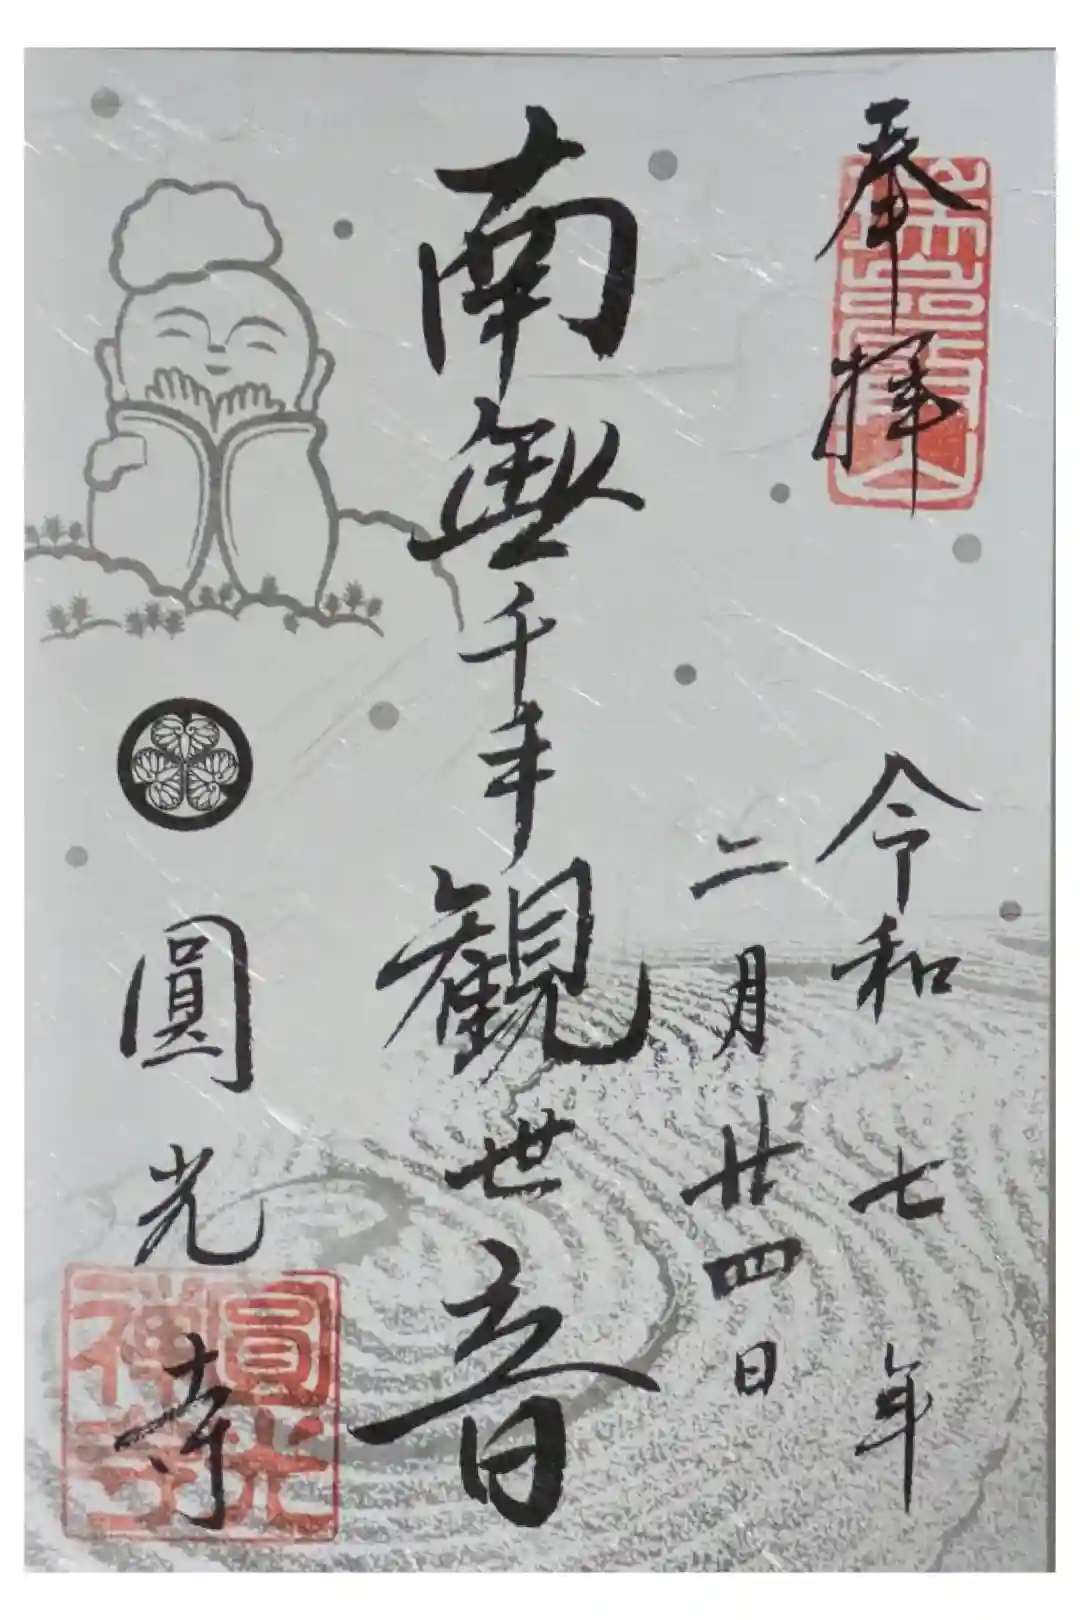 奉拝
令和七年
二月廿四日
南無千手観世音
圓光寺
圓光禅寺